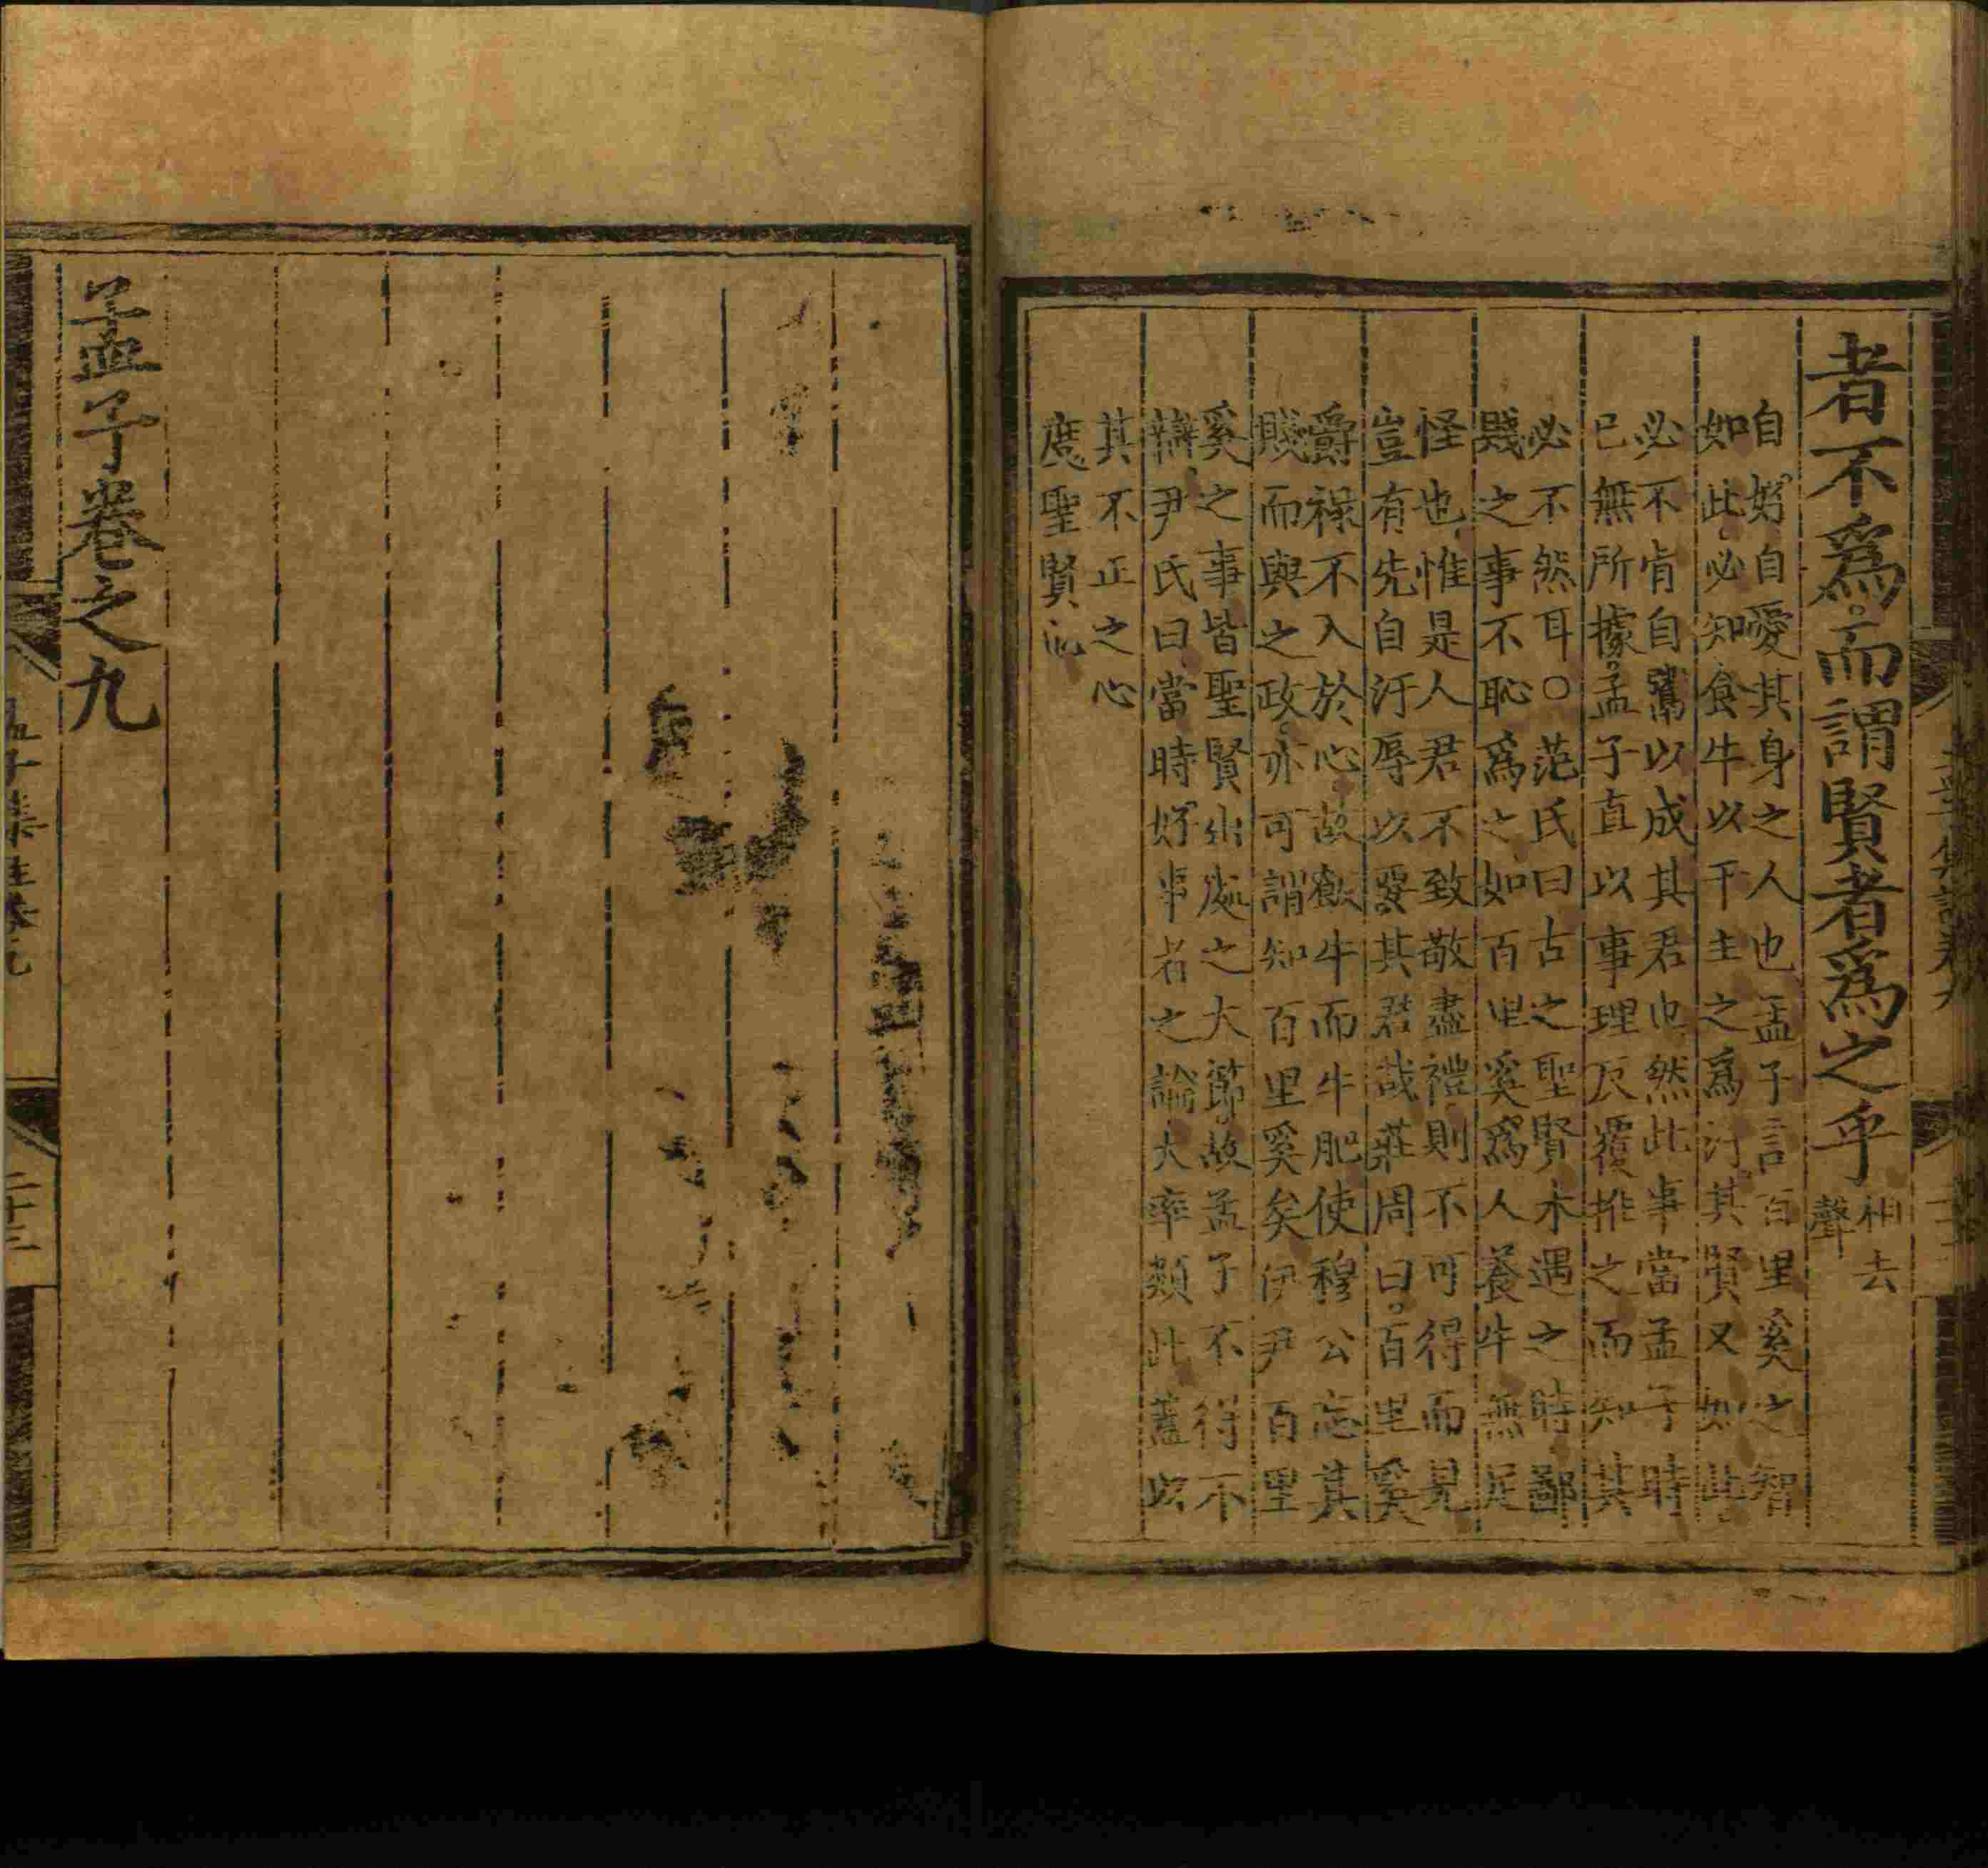 者不爲。而謂賢者爲之乎
相去
聲
自好自愛其身之人也孟子言百里奚之智
如此必知食牛以干主之爲汙其賢又如此
必不肯自鬻以成其君也然此事當孟子時
已無所據。孟子直以事理反覆推之而知其
必不然耳○范氏曰古之聖賢未遇之時鄙
賤之事不恥爲之如百里奚爲人養牛無足
怪也惟是人君不致敬盡禮則不可得而見
豈有先自汙辱以要其君哉莊周曰。百里奚
爵祿不入於心故飯牛而牛肥使穆公忘其
賤而與之政亦可謂知百里奚矣伊尹百里
奚之事皆聖賢出處之大節故孟子不得不
辯尹氏曰當時好事者之論大率類此蓋以
其不正之心
度聖賢也
孟子卷之九